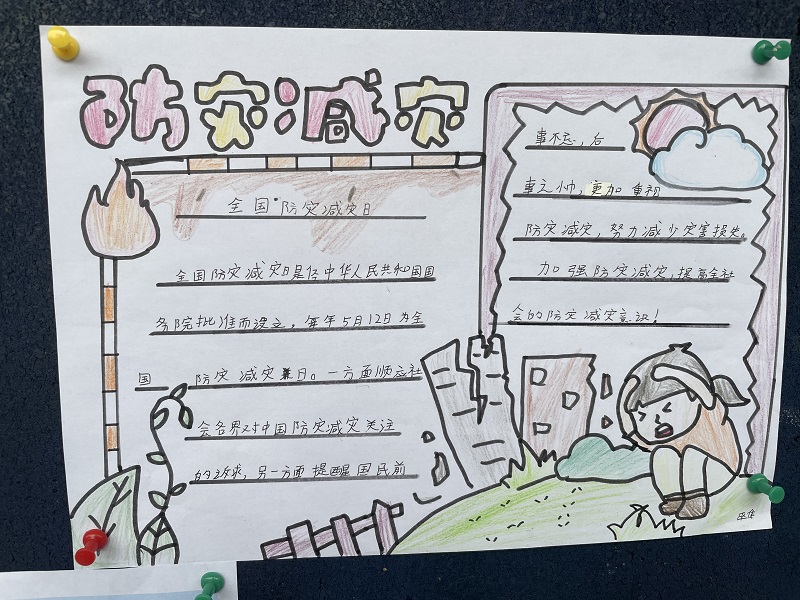 防灾减灾
全国防灾减灾日
全国防灾减灾日是经中华人民共和国国
务院批准而设立,每年5月12日为全
国防灾减灾日。一方面顺应社
会各界对中国防灾减灾关注
的诉求,另一方面提醒国民前
事不忘,后
事之帅,更加重视
防灾减灾,努力减少灾害损失。
加强防灾减灾,提高全社
会的防灾减灾意识!